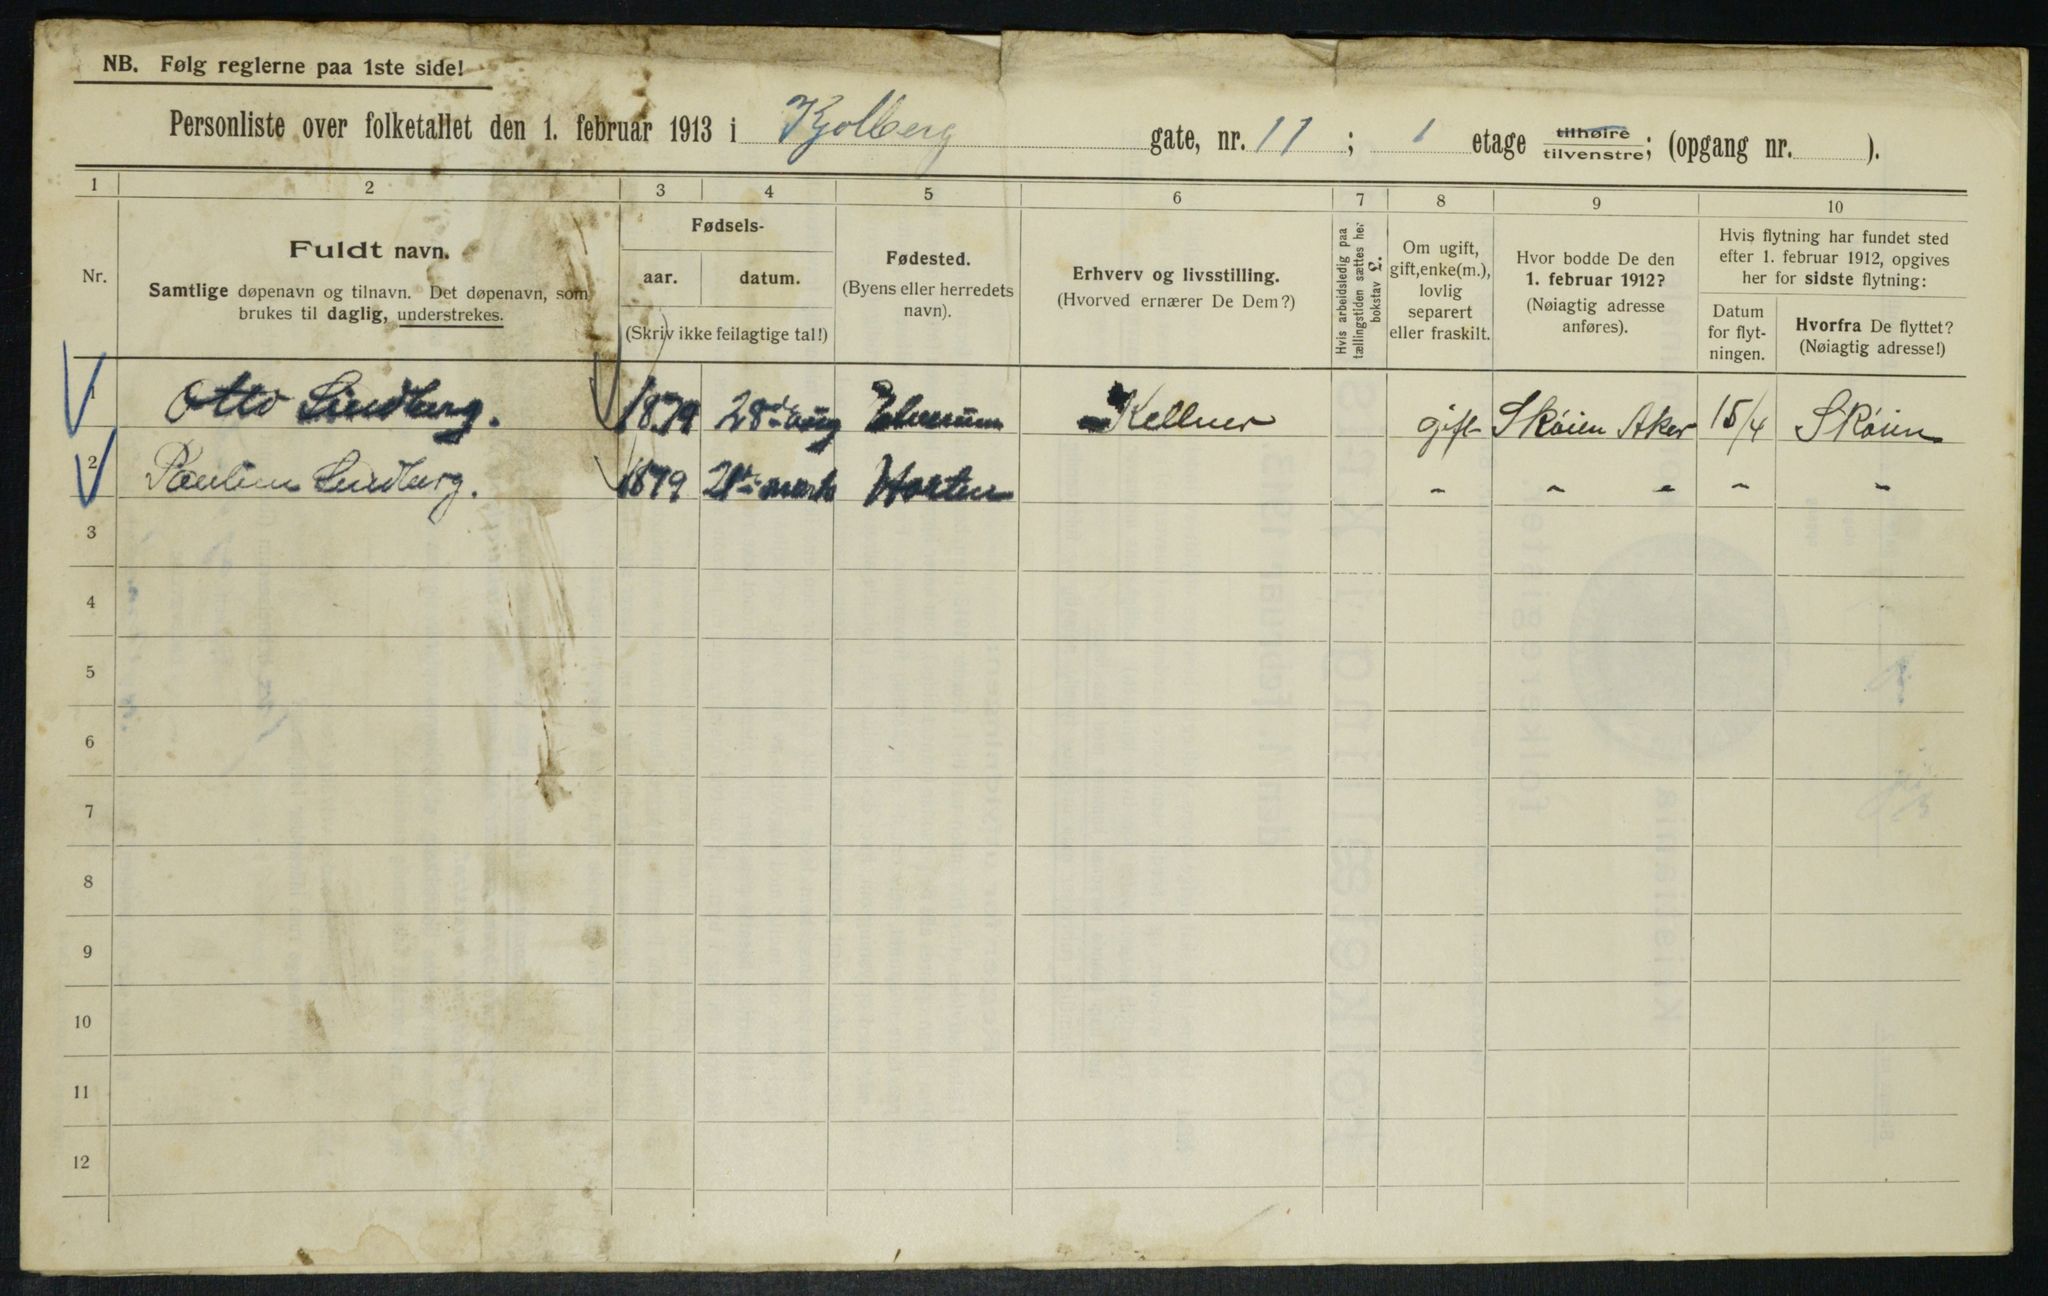 NB. Følg reglerne paa 1ste side!
Personliste over folketallet den 1. februar 1913 i Kjølberg gate, nr. 11 ; 1 etage tilhøire tilvenstre; (opgang nr. ).
1 2 3 4 5 6 7 8 9 10
Nr.
Fuldt navn.
Samtlige døpenavn og tilnavn. Det døpenavn, som
brukes til daglig, understrekes.
Fødsels-
aar. datum.
(Skriv ikke feilagtige tal!)
Fødested.
(Byens eller herredets
navn).
Erhverv og livsstilling.
(Hvorved ernærer De Dem?)
Hvis arbeidsledig paa
tællingstiden sættes her
bokstav L.
Om ugift,
gift, enke(m.),
lovlig
separert
eller fraskilt.
Hvor bodde De den
1. februar 1912?
(Nøiagtig adresse
anføres).
Hvis flytning har fundet sted
efter 1. februar 1912, opgives
her for sidste flytning:
Datum
for flyt-
ningen.
Hvorfra De flyttet?
(Nøiagtig adresse!)
1 Otto Lindberg. 1879 28de aug Elverum Kellner gift Skøien Aker 15/4 Skøien
2 Lindberg. 1879 21 Horten " " " " "
3
4
5
6
7
8
9
10
11
12